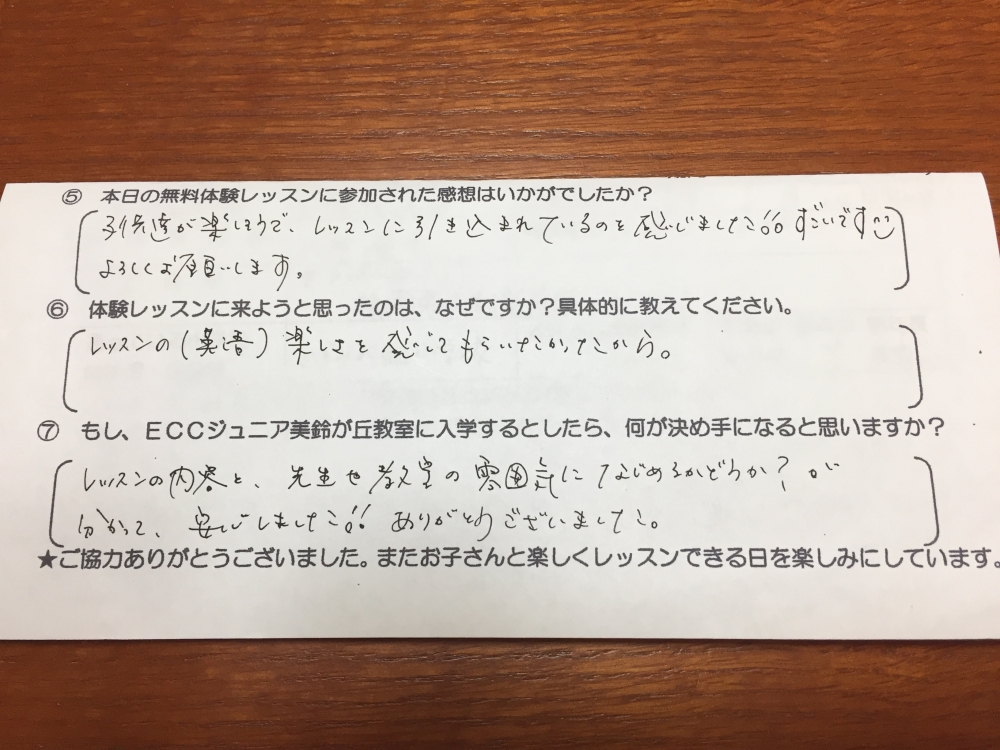 ⑤ 本日の無料体験レッスンに参加された感想はいかがでしたか?
子供達が楽しそうで、レッスンに引き込まれているのを感じました!! すごいです
よろしくお願いします。
⑥ 体験レッスンに来ようと思ったのは、なぜですか?具体的に教えてください。
レッスンの(英語)楽しさを感じてもらいたかったから。
⑦ もし、ECCジュニア美鈴が丘教室に入学するとしたら、何が決め手になると思いますか?
レッスンの内容と、先生や教室の雰囲気になじめるかどうか?が
分かって、安心しました!! ありがとうございました。
★ご協力ありがとうございました。またお子さんと楽しくレッスンできる日を楽しみにしています。